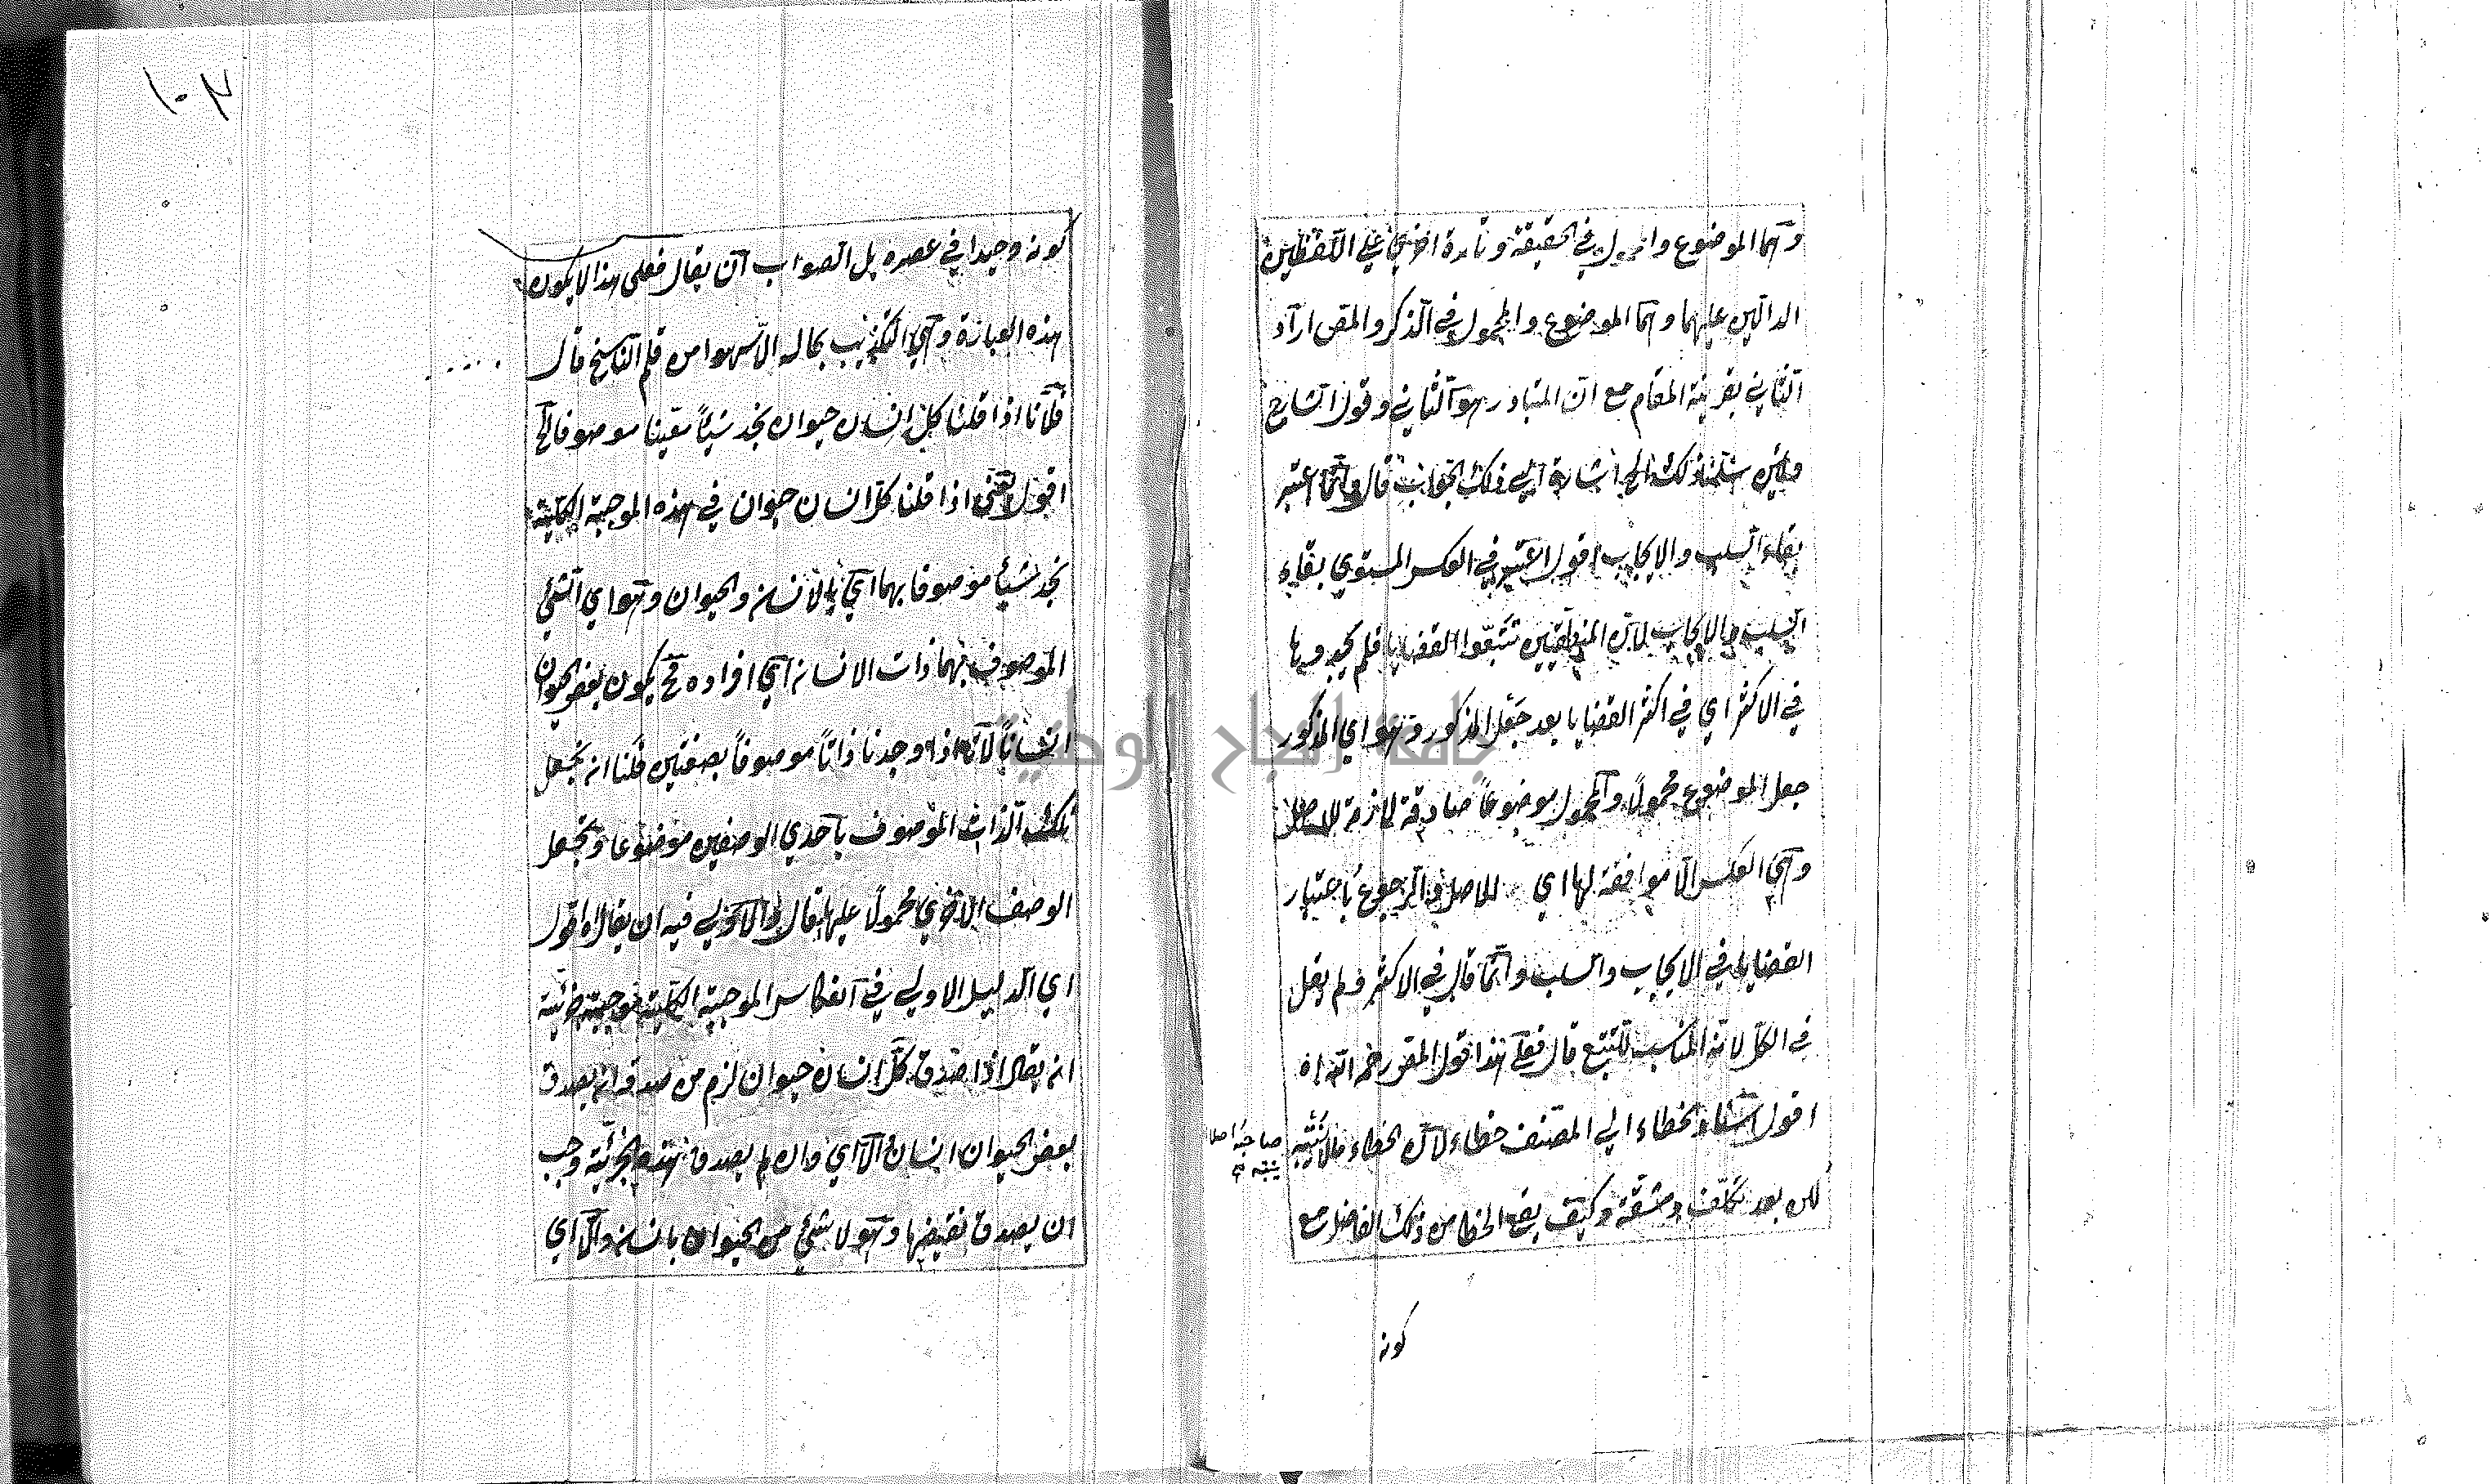 وهما الموضوع والمحمول في الحقيقة وتارة اخرى على اللفظين
الدالين عليهما وهما الموضوع والمحمول في الذكر والمص اراد
الثاني بقرينة المقام مع ان المتبادر هو الثاني وقول الشارح
ولئن سلمنا ذلك الخ اشارة الي ذلك الجواب قال وانما اعتبر
بقاء السلب والايجاب اقول اعتبر في العكس المستوي بقاء
السلب والايجاب لان المنطقيين تتبعوا القضايا فلم يجدوها
في الاكثر اي في اكثر القضايا بعد جعل المذكور وهو اي المذكور
جعل الموضوع محمولاً والمحمول موضوعاً صادقة لازمة للاصل
وهي العكس الا موافقة لها اي للاصل والرجوع باعتبار
القضايا في الايجاب والسلب وانما قال في الاكثر ولم يقل
في الكل لانه المناسب للتتبع قال فعلى هذا قول المصر حمه الله اه
اقول اسناد الخطاء الي المصنف خطاء لان الخطاء مالا يتنبه
صاحبه اصلا
يتنبه
لكن بعد تكلف ومشقة وكيف يقع الخطا من ذلك الفاضل مع
كونه
١٠٣
كونه وحيدا في عصره بل الصواب ان يقال فعلى هذا لا يكون
هذه العبارة وهي التكذيب بحاله الا سهوا من قلم الناسخ قال
فلانا اذا قلنا كل انسان حيوان نجد شيئاً معينا موصوفا الخ
اقول يعني اذا قلنا كل انسان حيوان في هذه الموجبة الكلية
نجد شيأ موصوفا بهما اي بالانسان والحيوان وهو اي الشئ
الموصوف بهما ذات الانسان اي افراده فح يكون بعض الحيوان
انساناً لانا اذا وجدنا ذاتاً موصوفاً بصفتين قلنا انه نجعل
تلك الذات الموصوف باحدي الوصفين موضوعا ونجعل
الوصف الاخري محمولاً عليها قال والاولي فيه ان يقال اه اقول
اي الدليل الاولي في انعكاس الموجبة الكلية موجبة جزئية
انه يقال اذا صدق كل انسان حيوان لزم من صدقه انه يصدق
بعض الحيوان انسان والا اي وان لم يصدق هذه الجزئية وجب
ان يصدق نقيضها وهو لا شئ من الحيوان بانسان والا اي
جامعة النجاح الوطنية